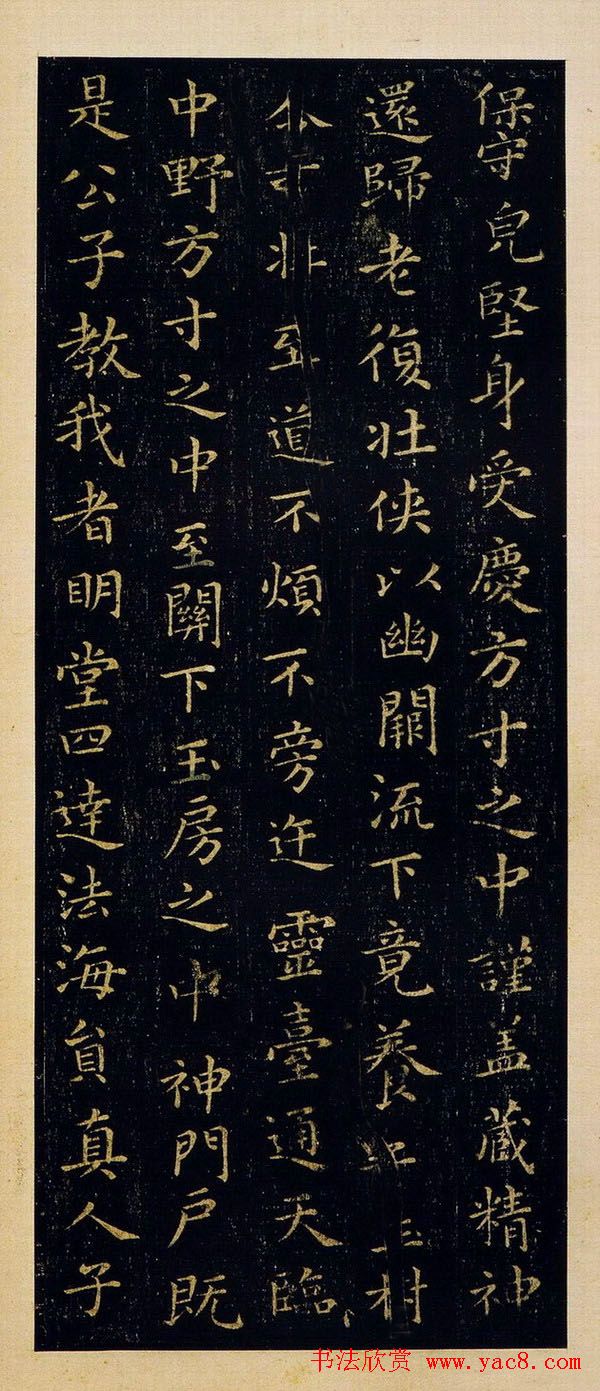 保守皃堅身受慶方寸之中謹盖藏精神
還歸老復壯俠以幽闕流下竟養 玉樹
至道不煩不旁迕靈臺通天臨
中野方寸之中至關下玉房之中神門戶既
是公子教我者明堂四達法海貟真人子
书法欣赏 www.yac8.com